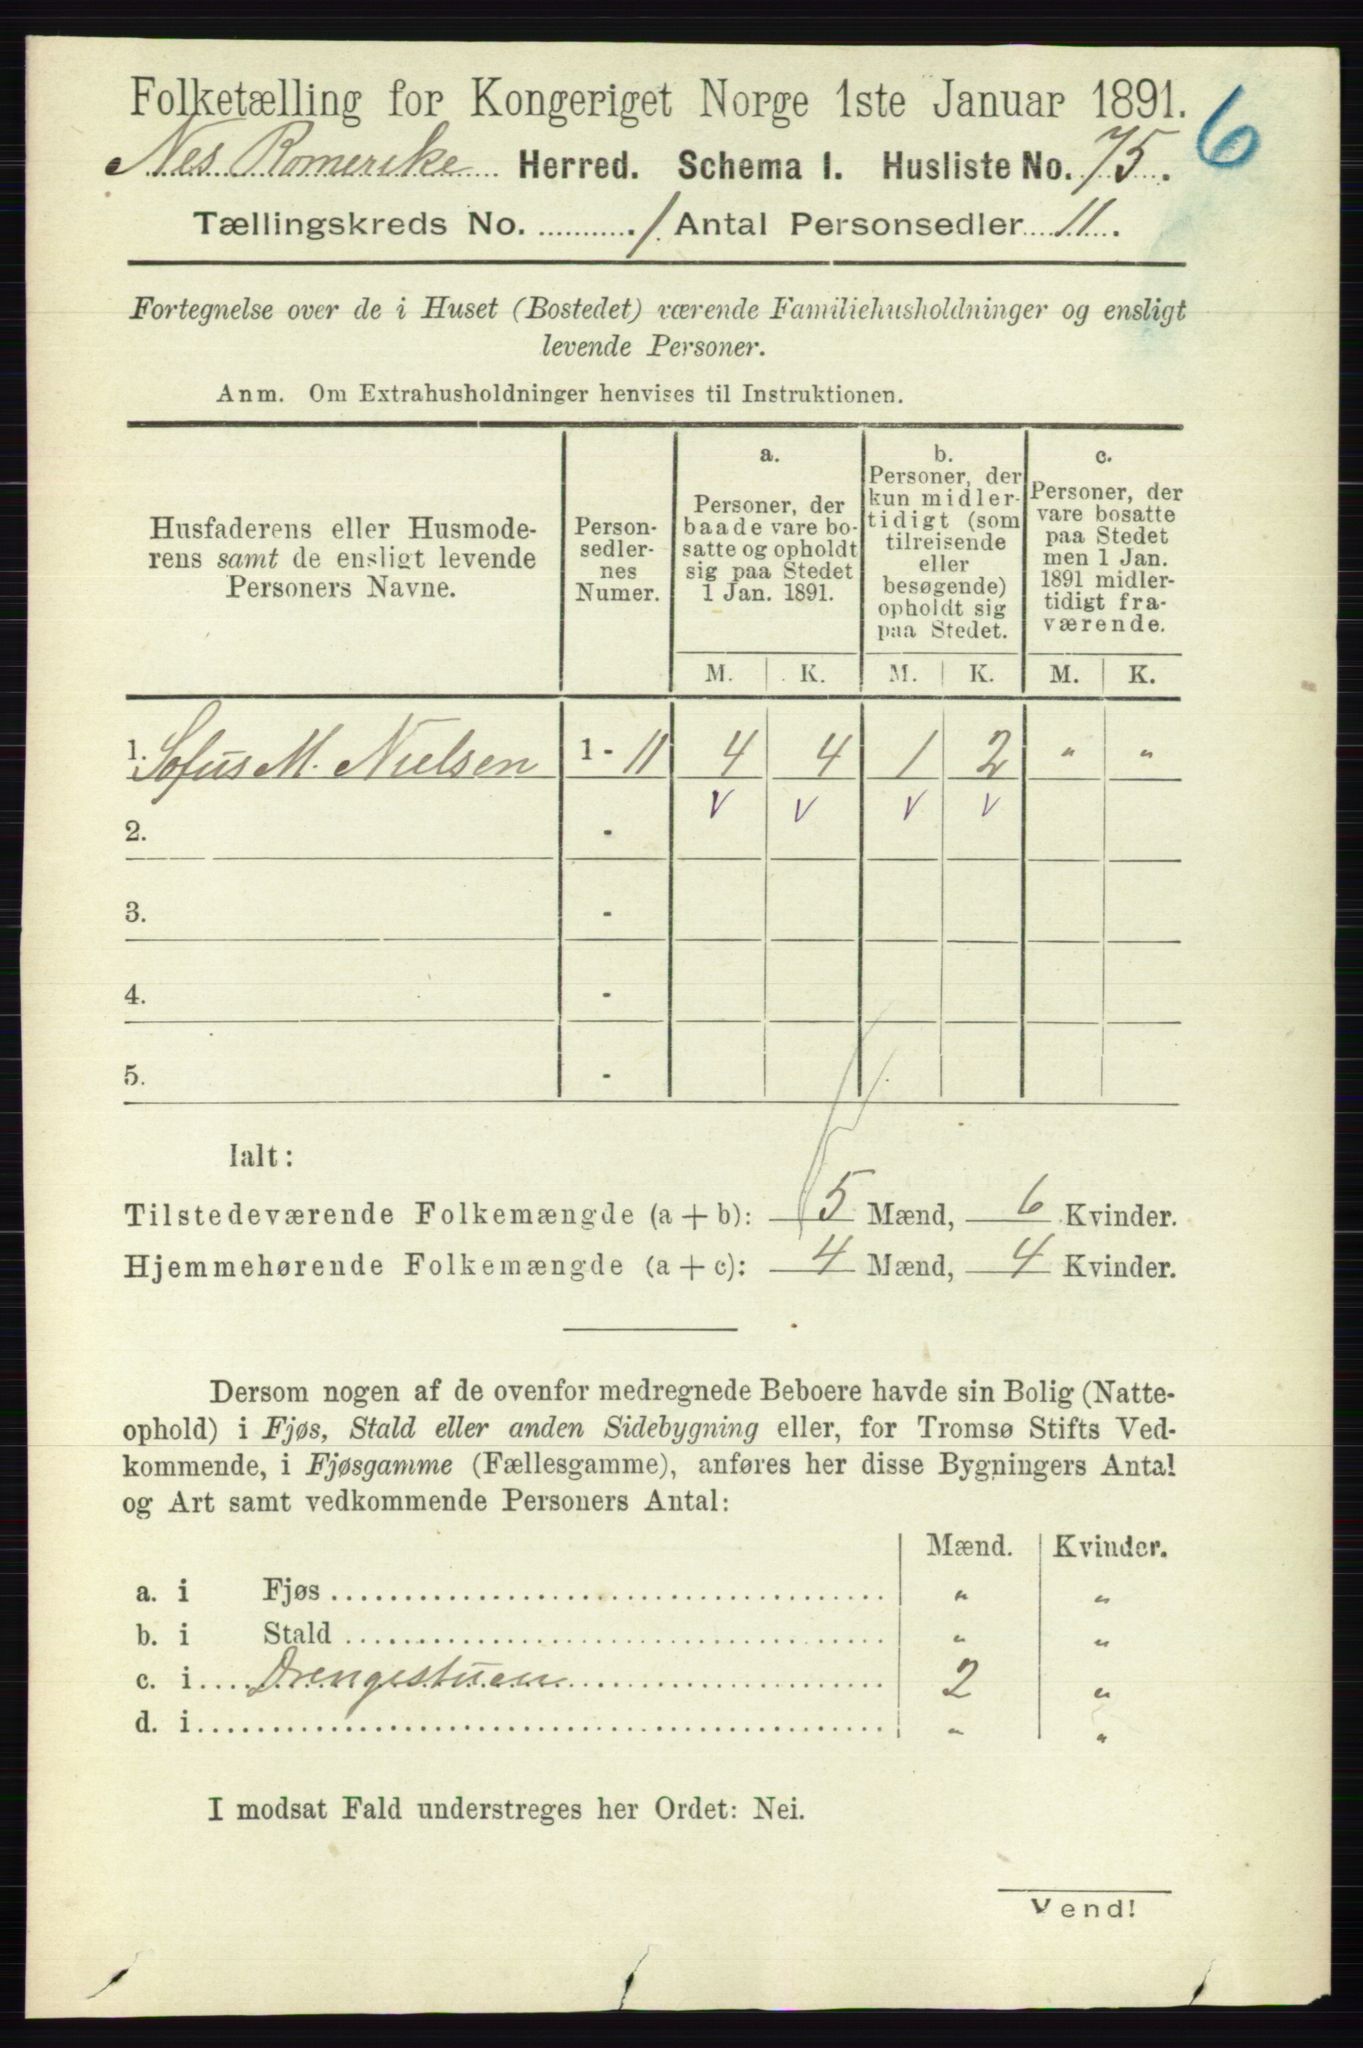 Folketælling for Kongeriget Norge 1ste Januar 1891.
6
Nes Romerike Herred. Schema I. Husliste No. 75.
Tællingskreds No. 1 Antal Personsedler 11.
Fortegnelse over de i Huset (Bostedet) værende Familiehusholdninger og ensligt
levende Personer.
Anm. Om Extrahusholdninger henvises til Instruktionen.
Husfaderens eller Husmode-
rens samt de ensligt levende
Personers Navne.
Person-
sedler-
nes
Numer.
a.
Personer, der
baade vare bo-
satte og opholdt
sig paa Stedet
1 Jan. 1891.
b.
Personer, der
kun midler-
tidigt (som
tilreisende
eller
besøgende)
opholdt sig
paa Stedet.
c.
Personer, der
vare bosatte
paa Stedet
men 1 Jan.
1891 midler-
tidigt fra-
værende.
M. K. M. K. M. K.
1. Sofus M. Nielsen 1 - 11 4 4 1 2 " "
v v v v
2. -
3. -
4. -
5. -
Ialt:
Tilstedeværende Folkemængde (a + b): 5 Mænd, 6 Kvinder.
Hjemmehørende Folkemængde (a + c): 4 Mænd, 4 Kvinder.
Dersom nogen af de ovenfor medregnede Beboere havde sin Bolig (Natte-
ophold) i Fjøs, Stald eller anden Sidebygning eller, for Tromsø Stifts Ved-
kommende, i Fjøsgamme (Fællesgamme), anføres her disse Bygningers Antal
og Art samt vedkommende Personers Antal:
Mænd. Kvinder.
a. i Fjøs " "
b. i Stald " "
c. i Drengestuen 2 "
d. i " "
I modsat Fald understreges her Ordet: Nei.
Vend!